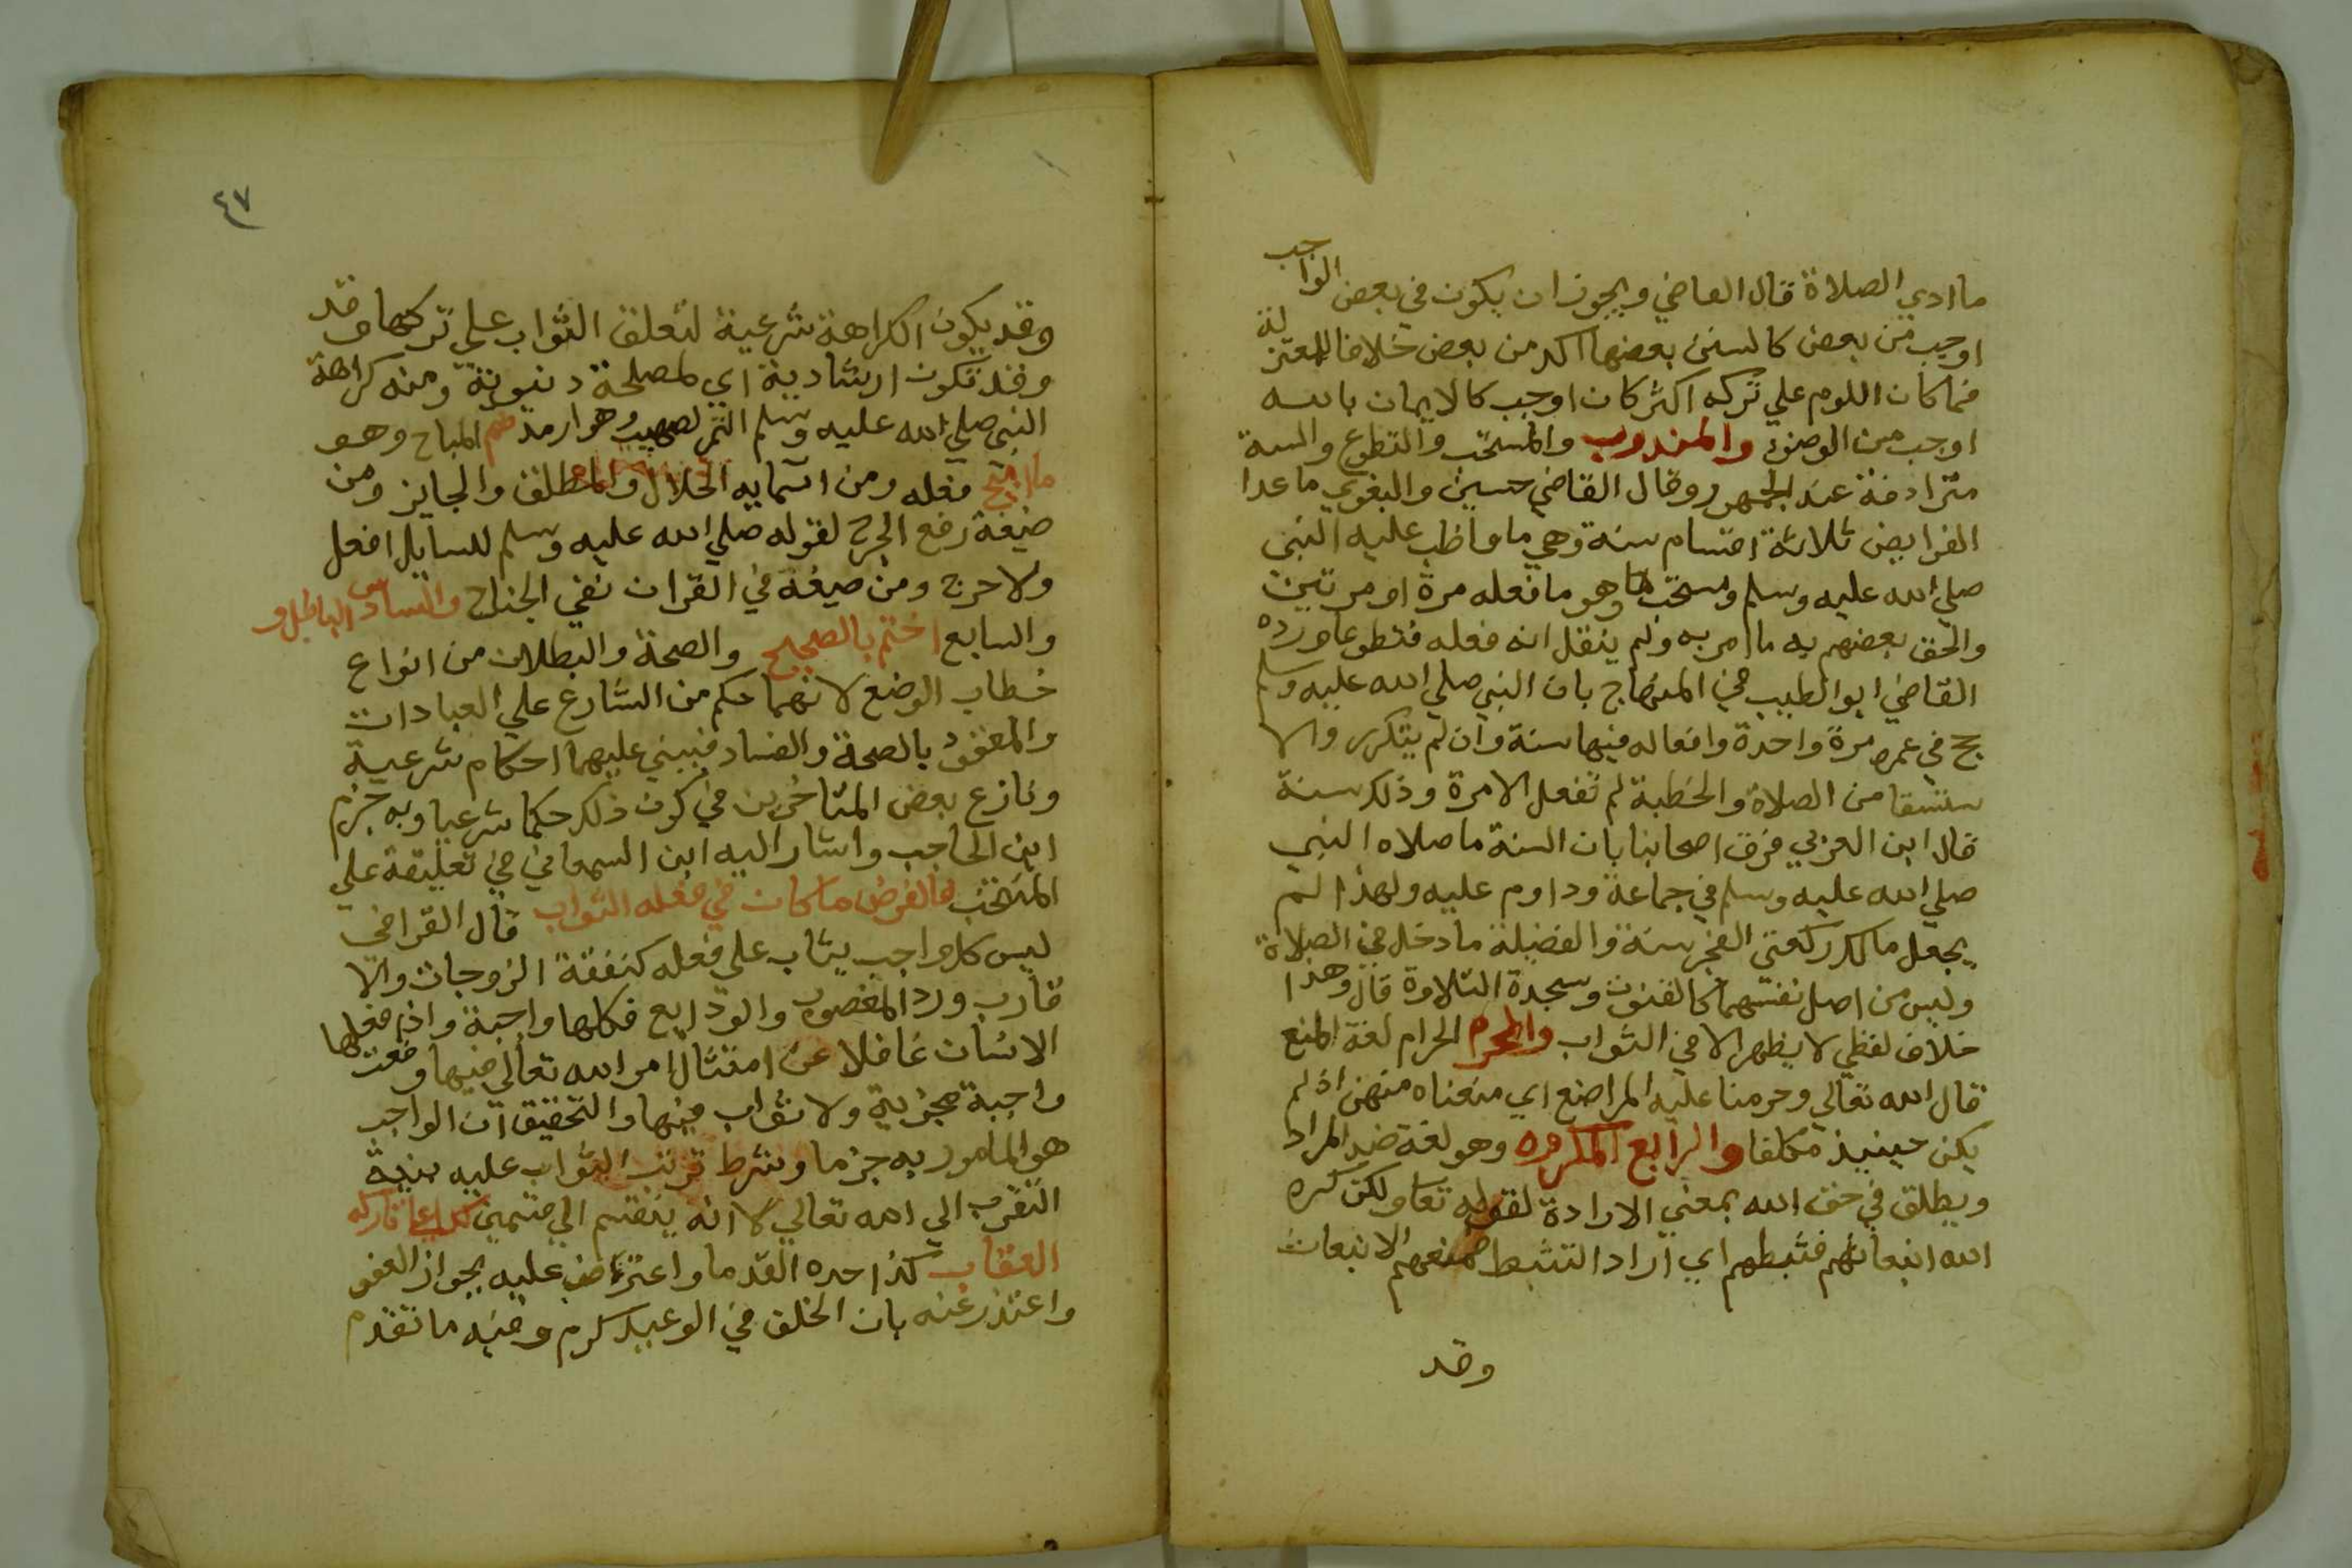 ما ادي الصلاة قال القاضي ويجوز ان يكون في بعض الواجب
اوجب من بعض كالسنن بعضها اكد من بعض خلافا للمعتزلة
فما كان اللوم علي تركه اكثر كان اوجب كالايمان بالله
اوجب من الوضوء والمندوب والمستحب والتطوع والسنة
مترادفة عند الجمهور وقال القاضي حسين والبغوي ما عدا
الفرايض ثلاثة اقسام سنة وهي ما واظب عليه النبي
صلي الله عليه وسلم ومستحب وهو ما فعله مرة او مرتين
والحق بعضهم به ما امر به ولم ينقل انه فعله فتطوعا ورده
القاضي ابو الطيب في المنهاج بان النبي صلي الله عليه وسلم
حج في عمره مرة واحدة وافعاله فيها سنة وان لم يتكرر والا
ستسقا من الصلاة والخطبة لم تفعل الا مرة وذلك سنة
قال ابن العربي فرق اصحابنا بان السنة ما صلاه النبي
صلي الله عليه وسلم في جماعة وداوم عليه ولهذا لم
يجعل مالك ركعتي الفجر سنة والفضيلة ما دخل في الصلاة
وليس من اصل نفسهما كالقنوت وسجدة التلاوة قال وهذا
خلاف لفظي لا يظهر الا في الثواب والمحرم الحرام لغة المنع
قال الله تعالي وحرمنا عليه المراضع اي منعناه منهن اذ لم
يكن حينيذ مكلفا والرابع المكروه وهو لغة ضد المراد
ويطلق في حق الله بمعني الارادة لقوله تعا ولكن كره
الله انبعاثهم فثبطهم اي اراد التثبط فمنعهم الانبعاث
وقد
٤٧
وقد يكون الكراهة شرعية لتعلق الثواب علي تركها وقد
وقد تكون ارشادية اي لمصلحة دنيوية ومنه كراهة
النبي صلي الله عليه وسلم التمر لصهيب وهو ارمد ثم المباح وهو
ما ابيح فعله ومن اسمايه الحلال والمطلق والجايز ومن
صيغة رفع الحرج لقوله صلي الله عليه وسلم للسايل افعل
ولا حرج ومن صيغة في القران نفي الجناح والسادس الباطل و
والسابع اختم بالصحيح والصحة والبطلان من انواع
خطاب الوضع لانهما حكم من الشارع علي العبادات
والمعقود بالصحة والفساد فيبني عليهما احكام شرعية
ونازع بعض المتاخرين في كون ذلك حكما شرعيا وبه جزم
ابن الحاجب واشار اليه ابن السمعاني في تعليقة علي
المنتخب فالفرض ما كان في فعله الثواب قال القرافي
ليس كل واجب يثاب علي فعله كنفقة الزوجات والا
قارب ورد المغصوب والودايع فكلها واجبة واذا فعلها
الانسان غافلا عن امتثال امر الله تعالي فيها وقعت
واجبة مجزية ولا ثواب فيها والتحقيق ان الواجب
هو المامور به جزما وشرط ترتب الثواب عليه بنية
التقرب الي الله تعالي لا انه ينقسم الي قسمين كذا علي تاركه
العقاب كذا حده القدما واعترض عليه بجواز العفو
واعتذر عنه بان الخلف في الوعيد كرم وفيه ما تقدم